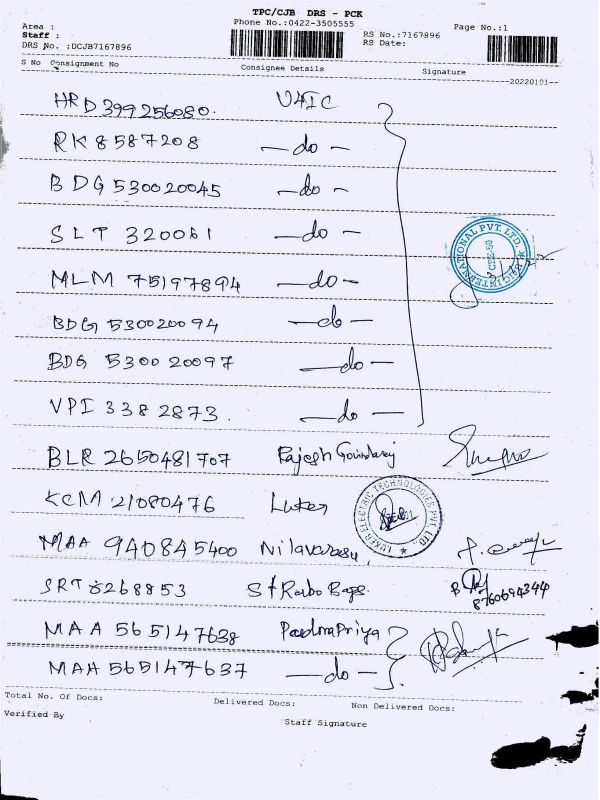 TPC/CJB DRS - PCK
Area :
Phone No.:0422-3505555
Page No.:1
Staff :
RS No.:7167896
DRS No. :DCJB7167896
RS Date:
S No Consignment No Consignee Details Signature
--20220101--
HRD 399256080. U4IC
RK 8587208 —do—
BDG 530020045 —do—
SLT 320061 —do—
INTERNATIONAL PVT. LTD.
MLM 75197894 —do—
BDG 530020094 —do—
BDG 530020097 —do—
VPI 3382873. —do—
BLR 2650481707 Rajesh Govindaraj
KCM 21080476 Luker
LUKER ELECTRIC TECHNOLOGIES PVT. LTD.
MAA 940845400 Nilavarasu
SRT 8268853
8760694344
MAA 565147638 PadmaPriya
MAA 565147637 —do—
Total No. Of Docs: Delivered Docs: Non Delivered Docs:
Verified By
Staff Signature